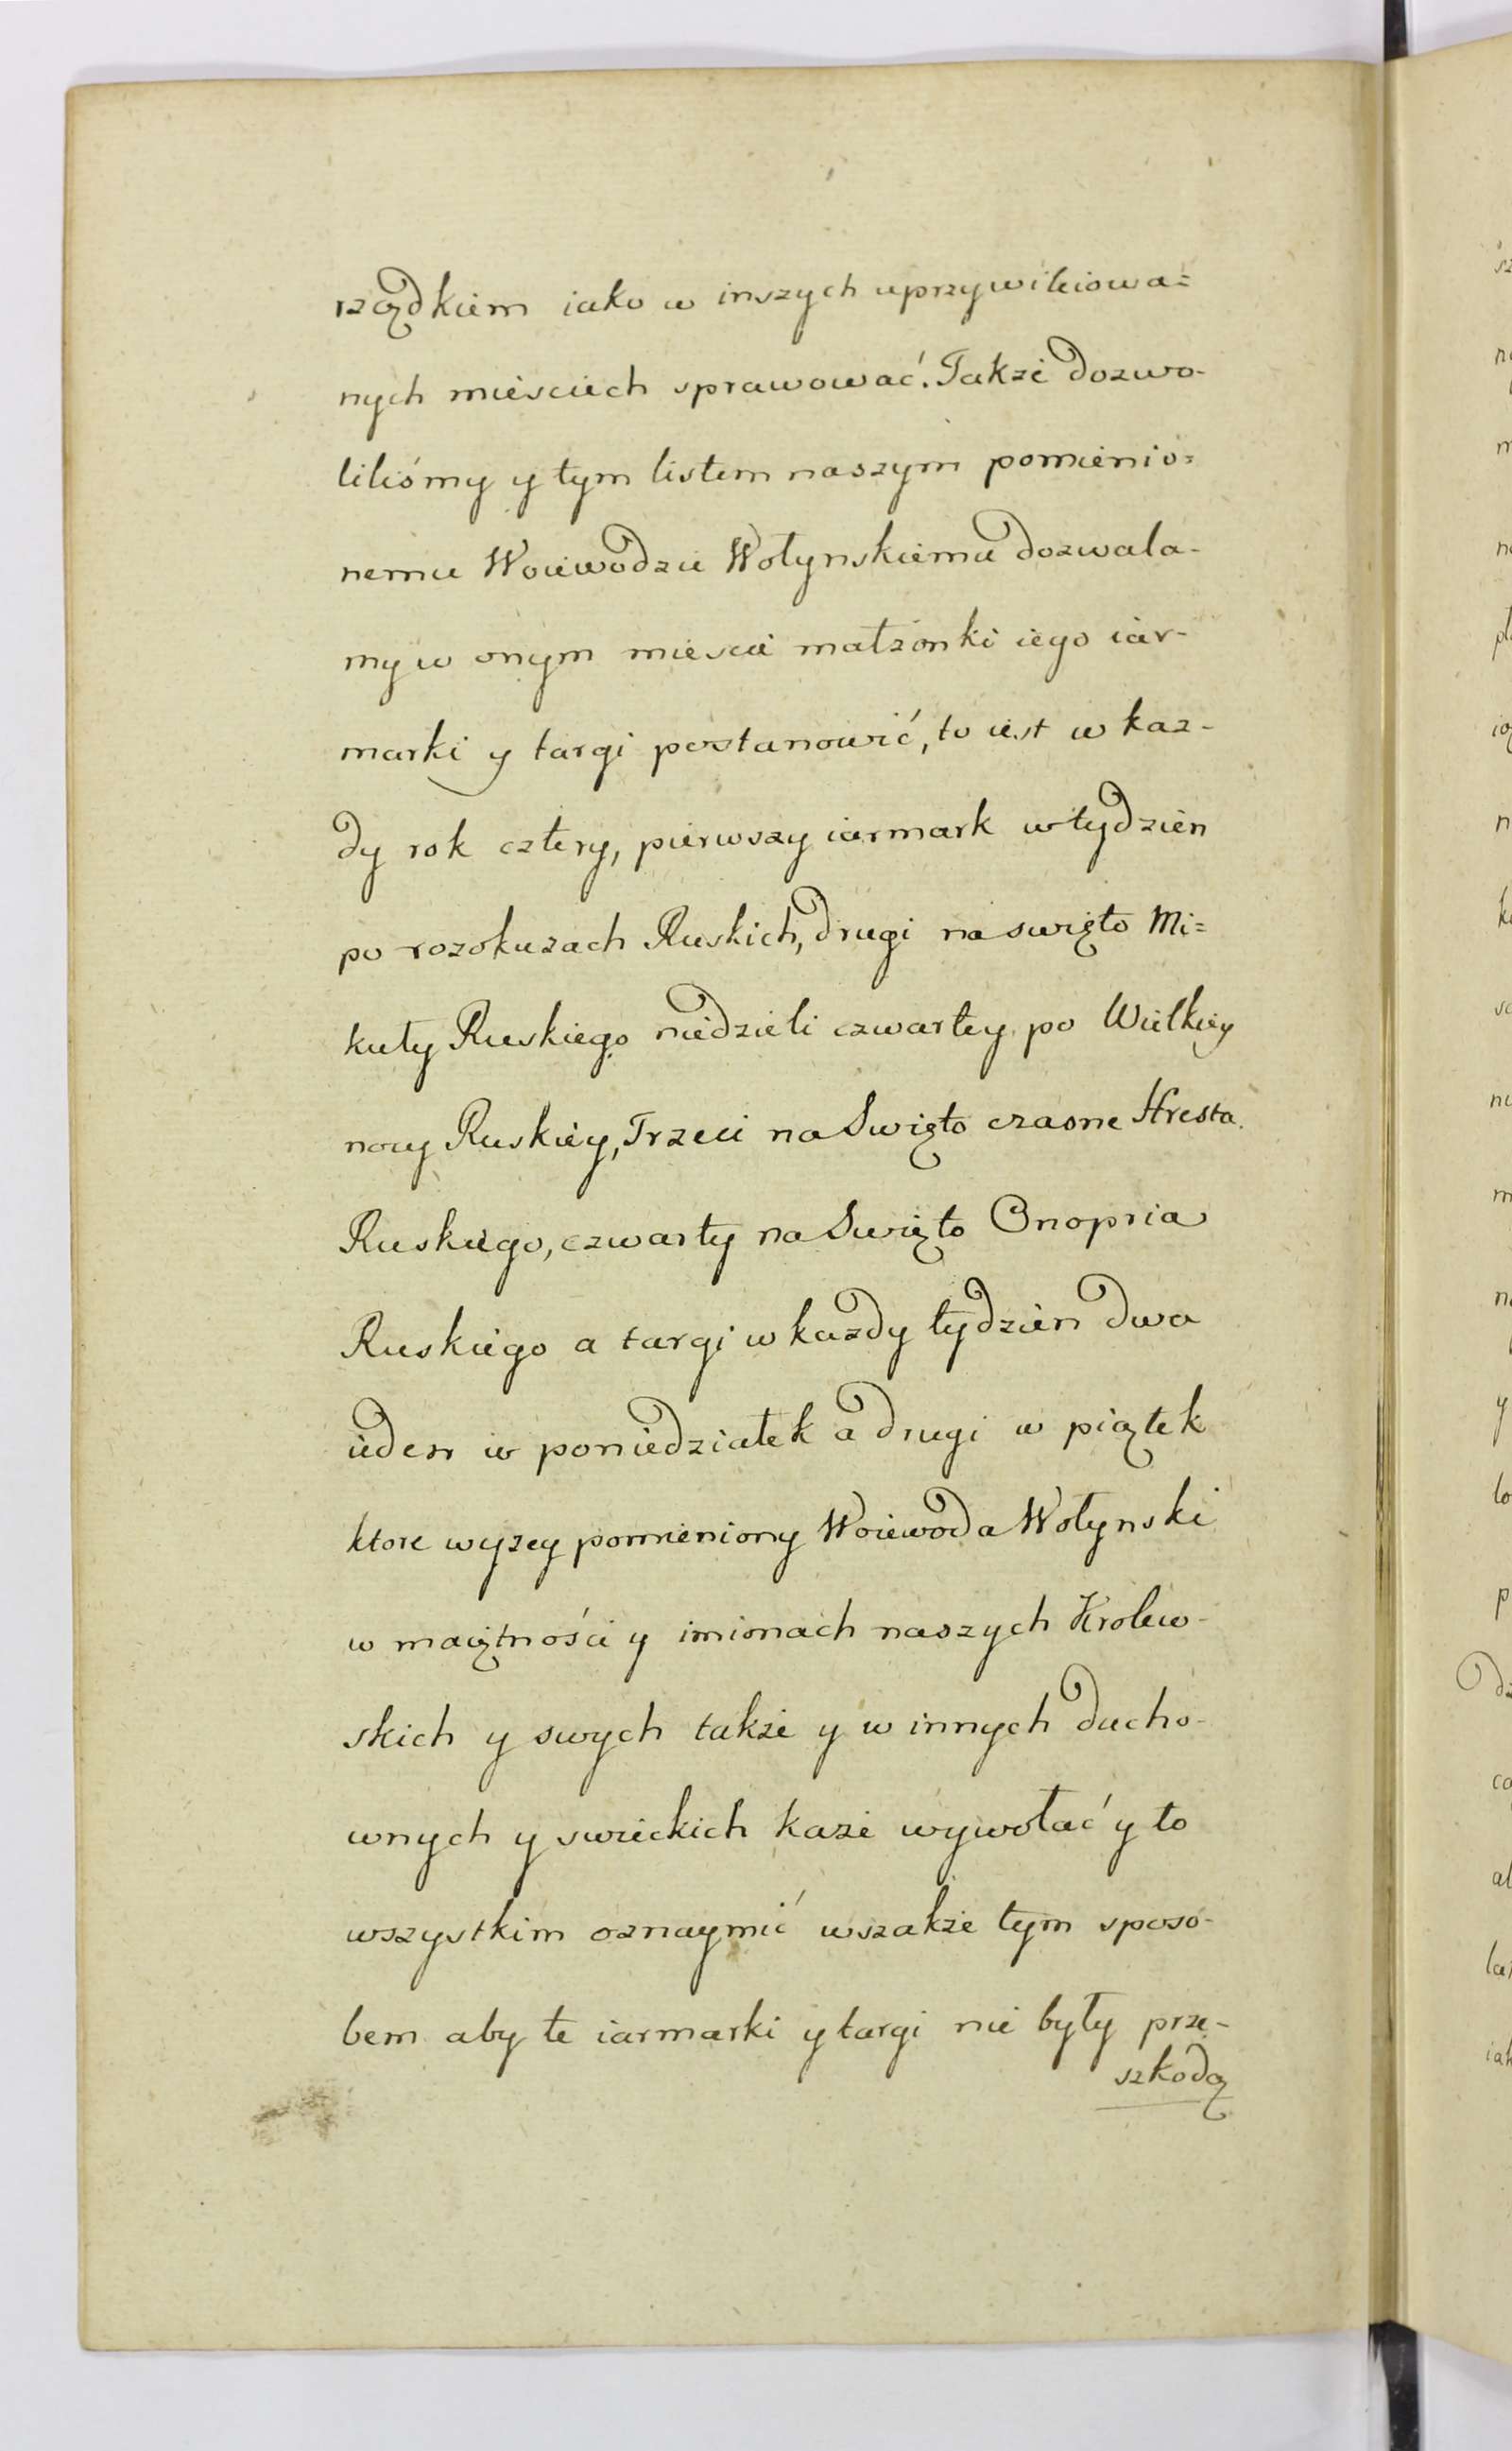 rządkiem iako w inszych uprzywileiowa=
nych miesciech sprawować. Takze dozwo-
liliśmy y tym listem naszym pomienio=
nemu Woiewodzie Wołynskiemu dozwala-
my w onym miescie małżonki iego iar-
marki y targi postanowić, to iest w kaz-
dy rok cztery, pierwszy iarmark w tydzien
po rozokuzach Ruskich, drugi na swięto Mi=
kuły Ruskiego niedzieli czwartey po Wielkiey
nocy Ruskiey, Trzeci na Swięto czasne Hresta
Ruskiego, czwarty na Swięto Onopria
Ruskiego a targi w kazdy tydzien dwa
ieden w poniedziałek a drugi w piątek
ktore wyzey pomieniony Woiewoda Wołynski
w maiętności y imionach naszych Krolew-
skich y swych także y w innych ducho-
wnych y swieckich każe wywołać y to
wszystkim oznaymić wszakże tym sposo-
bem aby te iarmarki y targi nie były prze-
szkodą